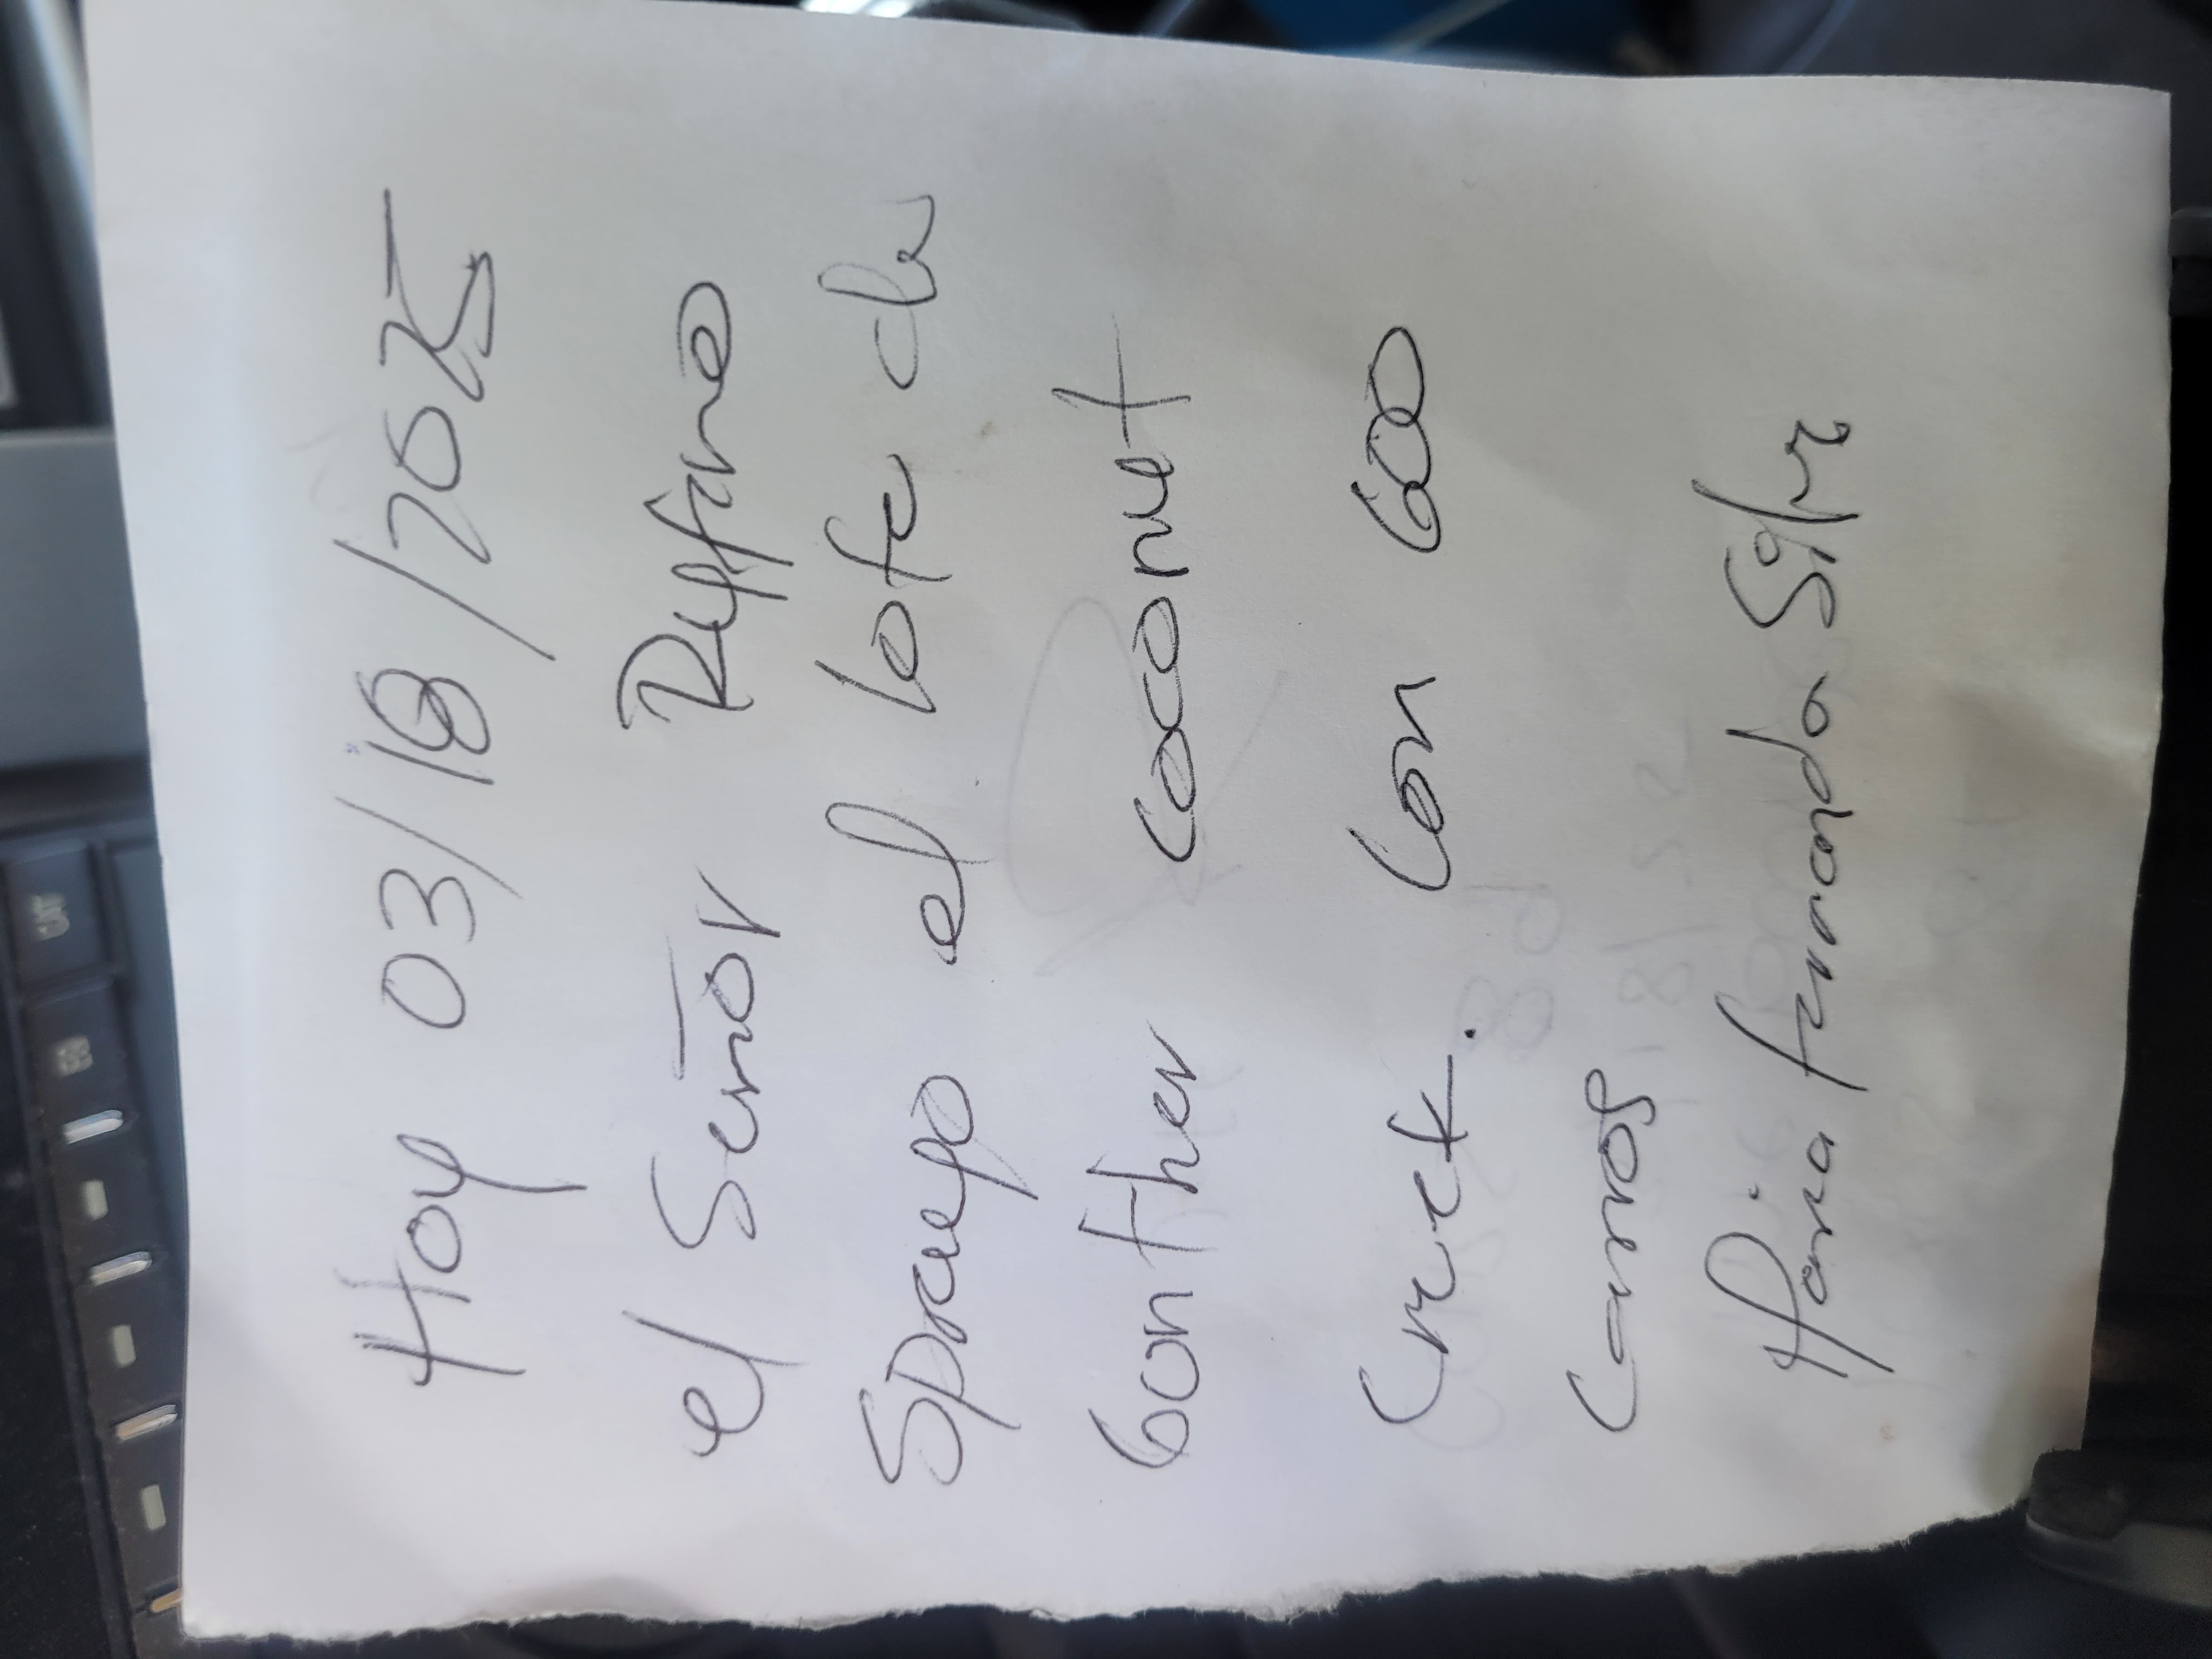 Hoy 03/18/2025
el Señor Ruffino
Sprayo el lote de
Gunther coconut
Creek. Con 600
Carros
Maria fernanda Silva